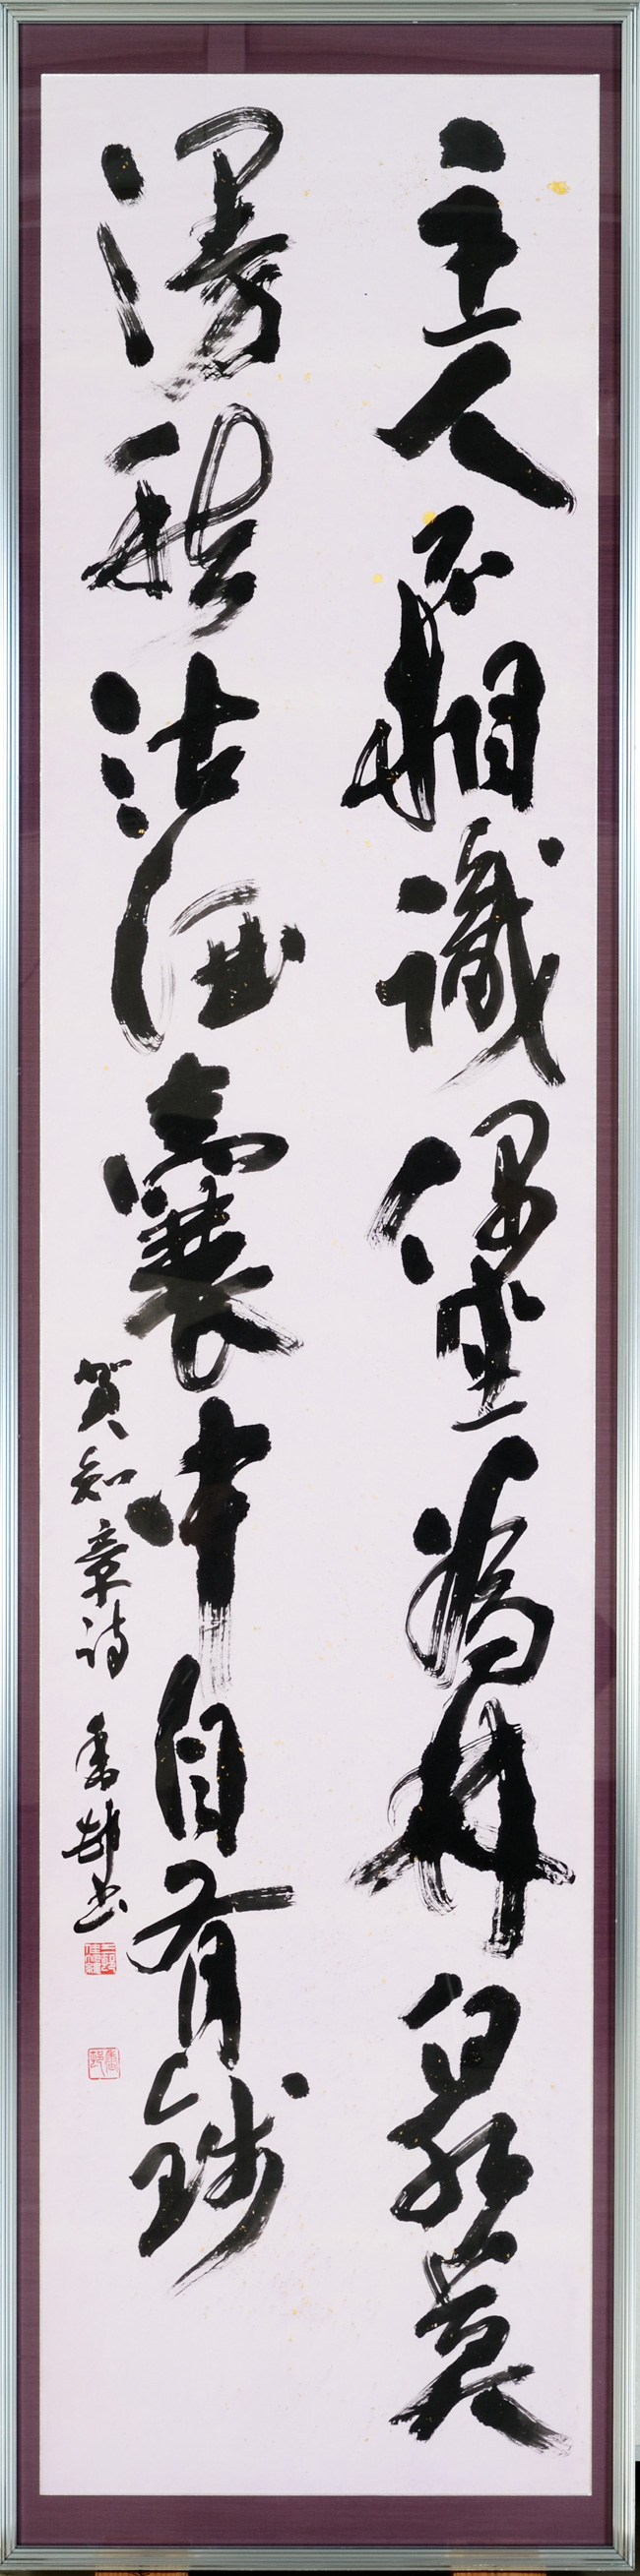 主人不相識偶坐為林泉莫
漫愁沽酒囊中自有錢
賀知章詩 香邨書